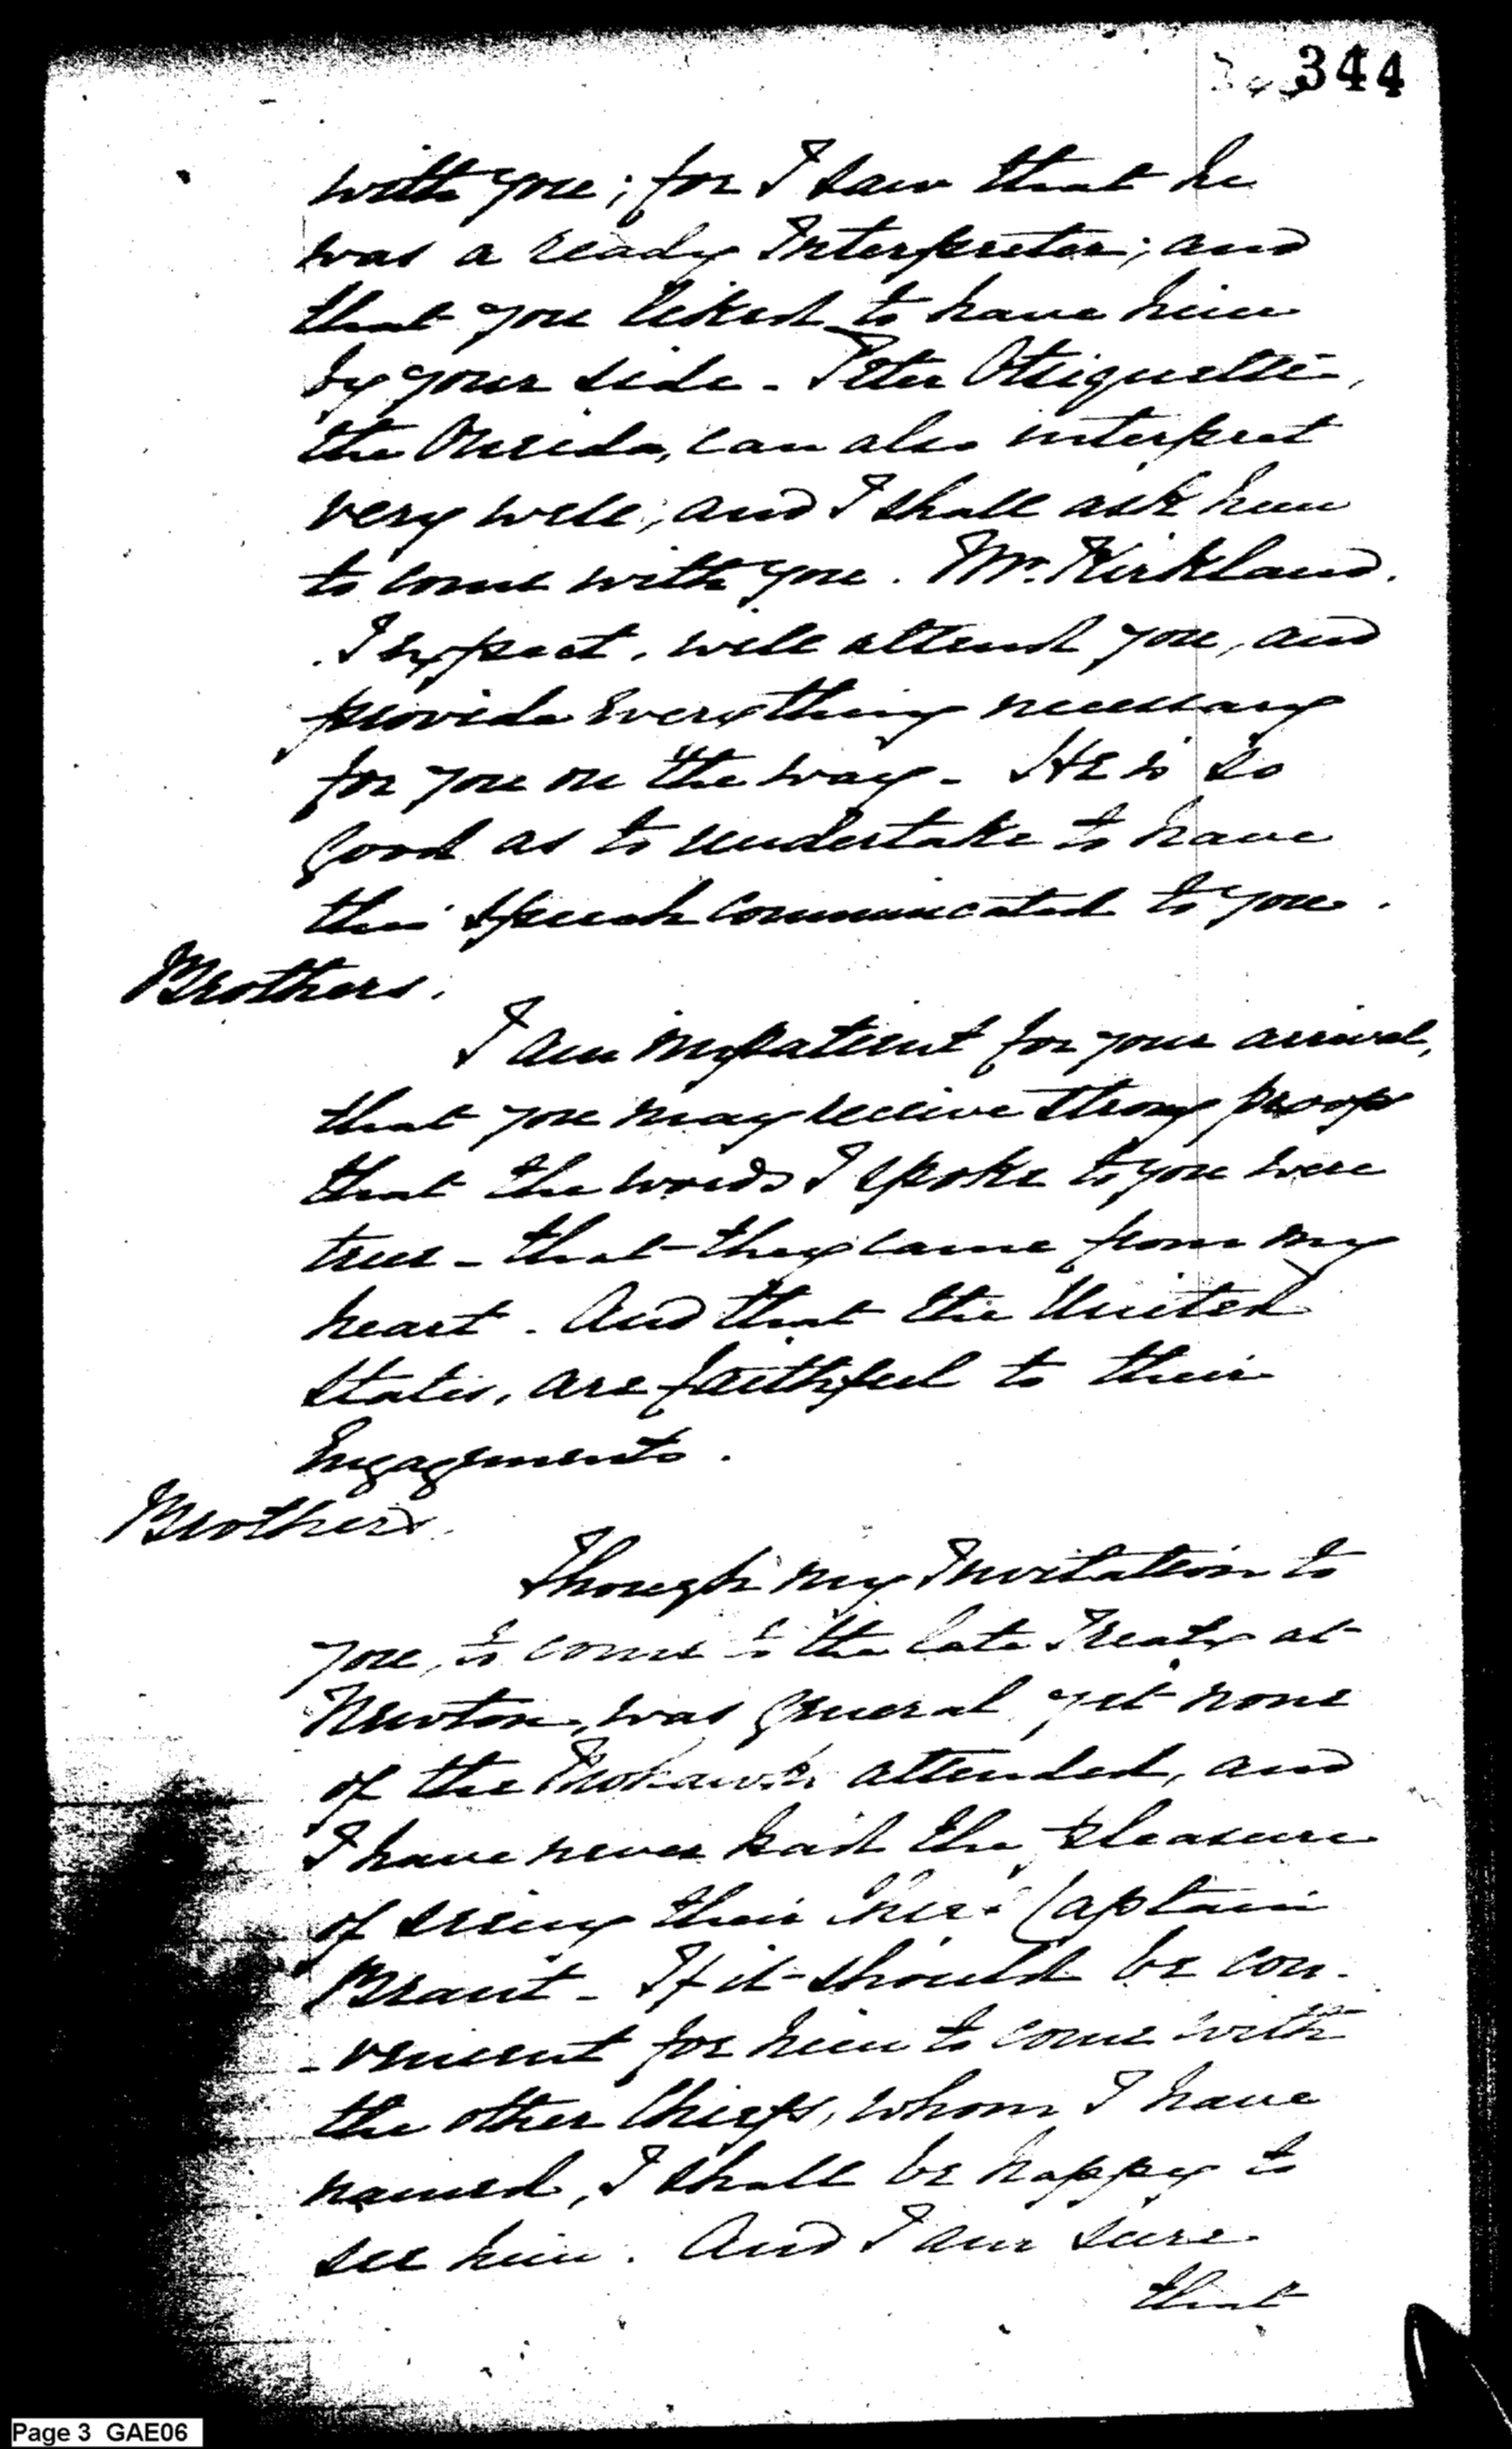 344
with you; for I saw that he
was a ready Interpreter; and
that you liked to have him
by your side - Peter Otsiquette,
the Oneida, can also interpret
very well; and I shall ask him
to come with you. Mr. Kirkland.
I expect, will attend you, and
provide every thing necessary
for you on the way - He is so
good as to undertake to have
this Speech communicated to you.
Brothers,
I am impatient for your arrival,
that you may receive strong proof
that the words I spoke to you were
true - that they came from my
heart. And that the United
States, are faithful to their
Engagements.
Brothers.
Though my Invitation to
you, to come to the late Treaty at
Newton, was general, yet none
of the Mohawks attended, and
I have never had the pleasure
of seeing their Chief Captain
Brant - If it should be con-
-venient for him to come with
the other Chiefs, whom I have
named, I shall be happy to
see him. And I am sure
that
Page 3 GAE06